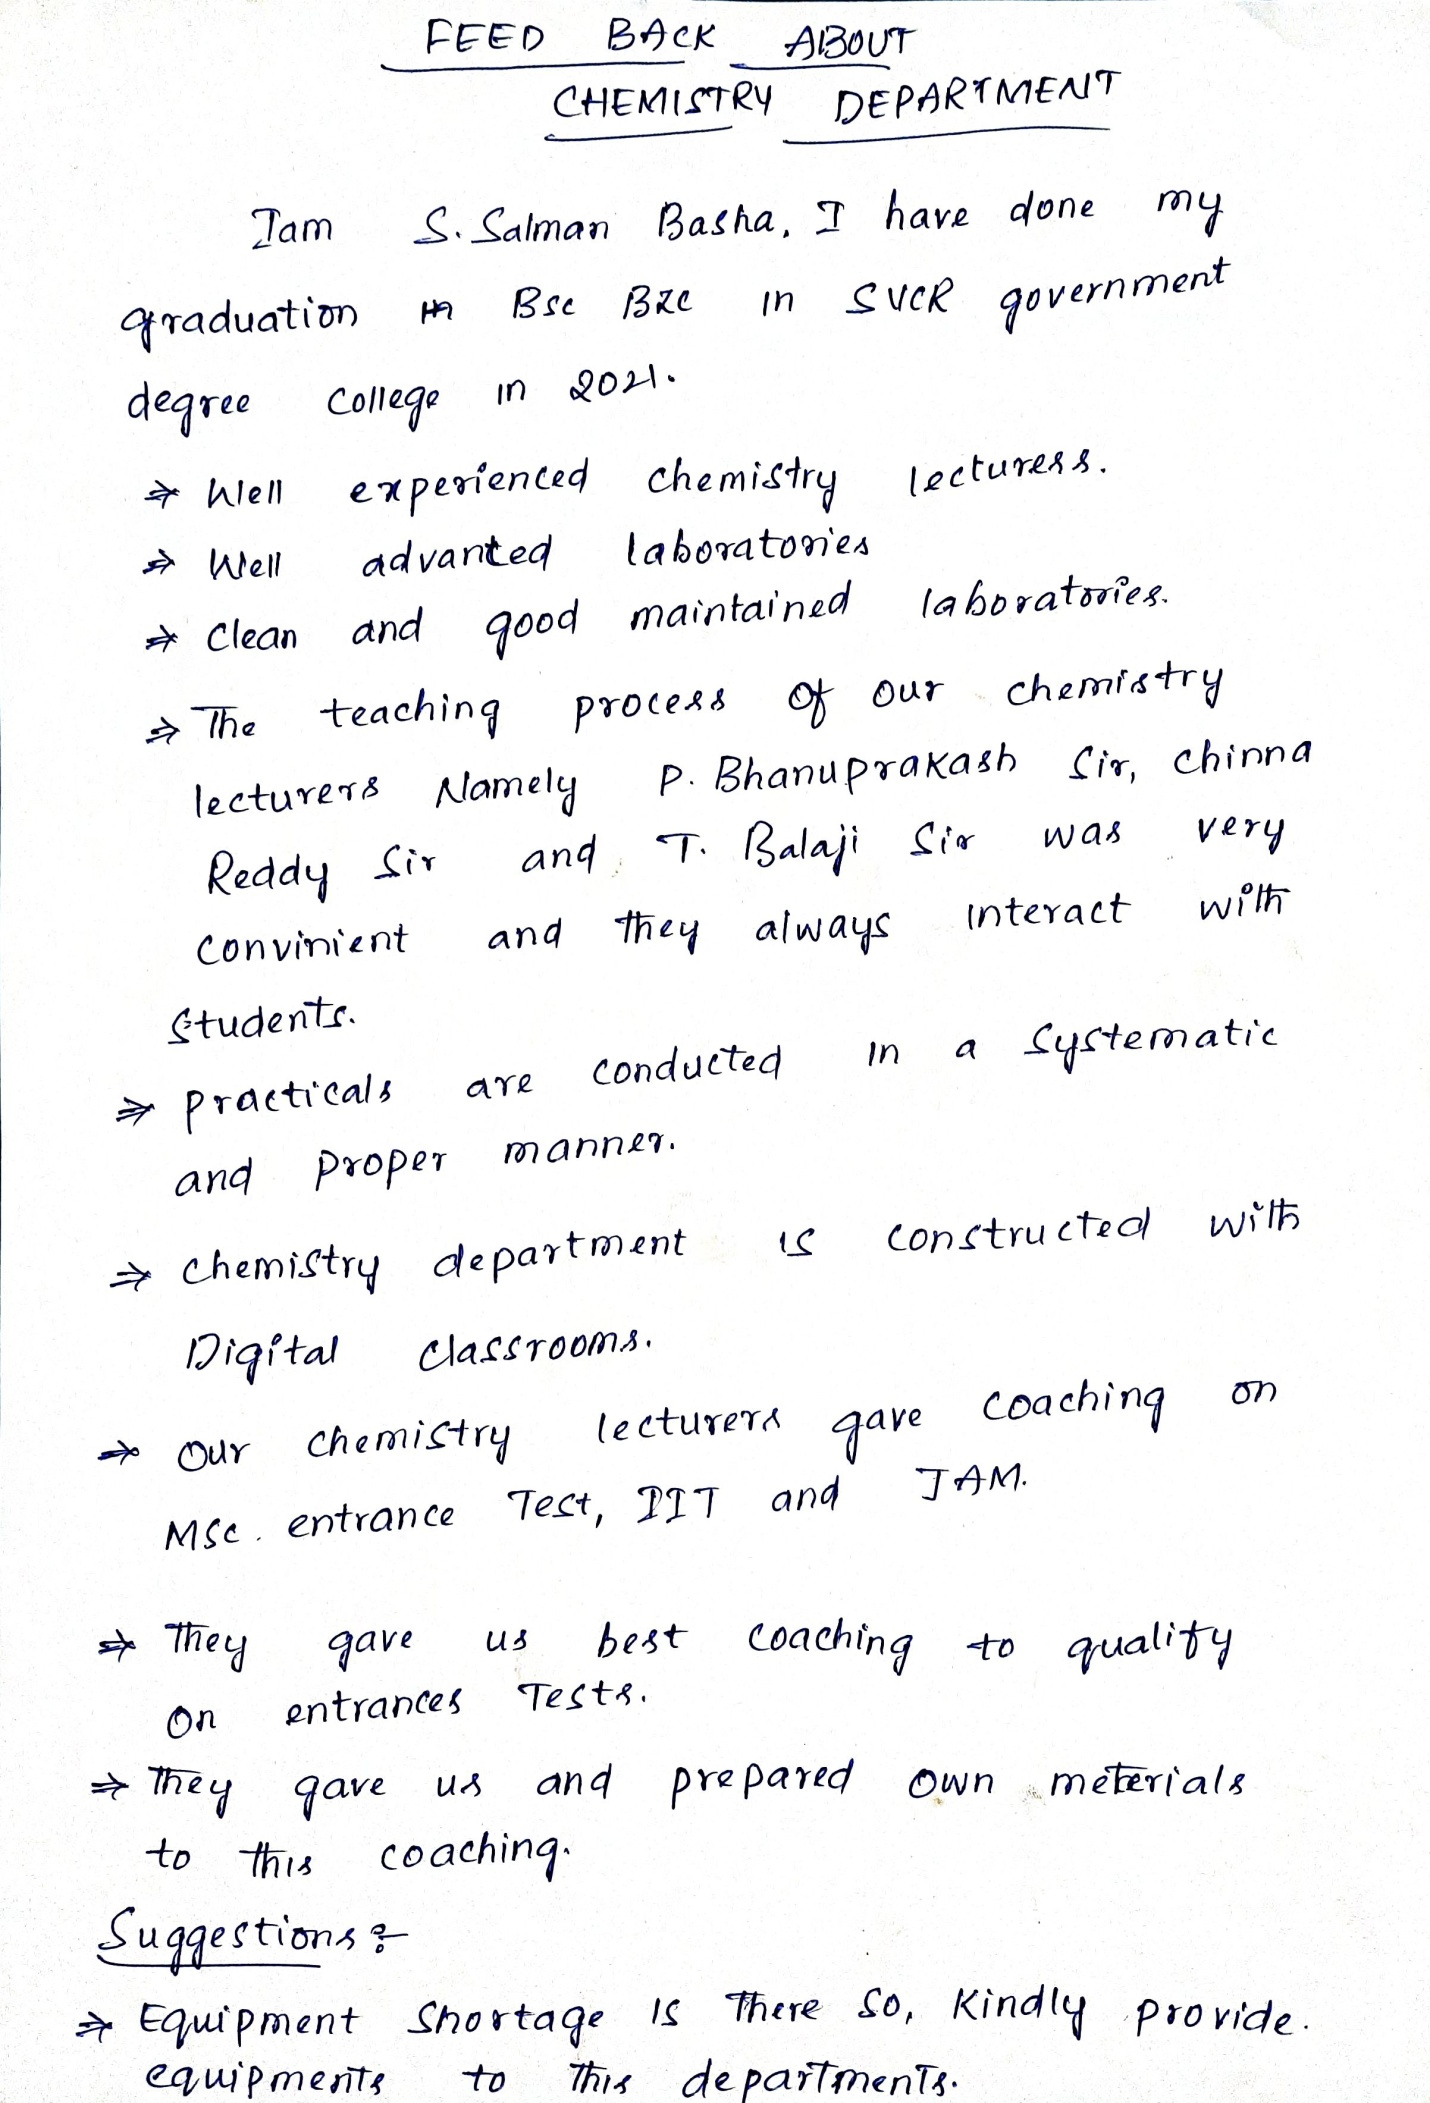 FEED BACK ABOUT
CHEMISTRY DEPARTMENT
Iam S. Salman Basha, I have done my
graduation in Bsc BZC in SVCR government
degree College in 2021.
⇒ Well experienced chemistry lecturess.
⇒ Well advanted laboratories
⇒ Clean and good maintained laboratories.
⇒ The teaching process of our chemistry
lecturers Namely P. Bhanuprakash Sir, chinna
Reddy Sir and T. Balaji Sir was very
convinient and they always interact with
Students.
⇒ practicals are conducted in a systematic
and proper manner.
⇒ chemistry department is constructed with
Digital classrooms.
⇒ our chemistry lecturers gave coaching on
MSc. entrance Test, IIT and JAM.
⇒ They gave us best coaching to qualify
on entrances Tests.
⇒ They gave us and prepared own meterials
to this coaching.
Suggestions:-
⇒ Equipment shortage is There so, kindly provide.
equipments to this departments.